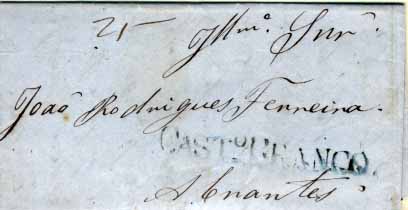 25
Illmo. Snr.
João Rodrigues Ferreira.
CASTO BRANCO
Abrantes